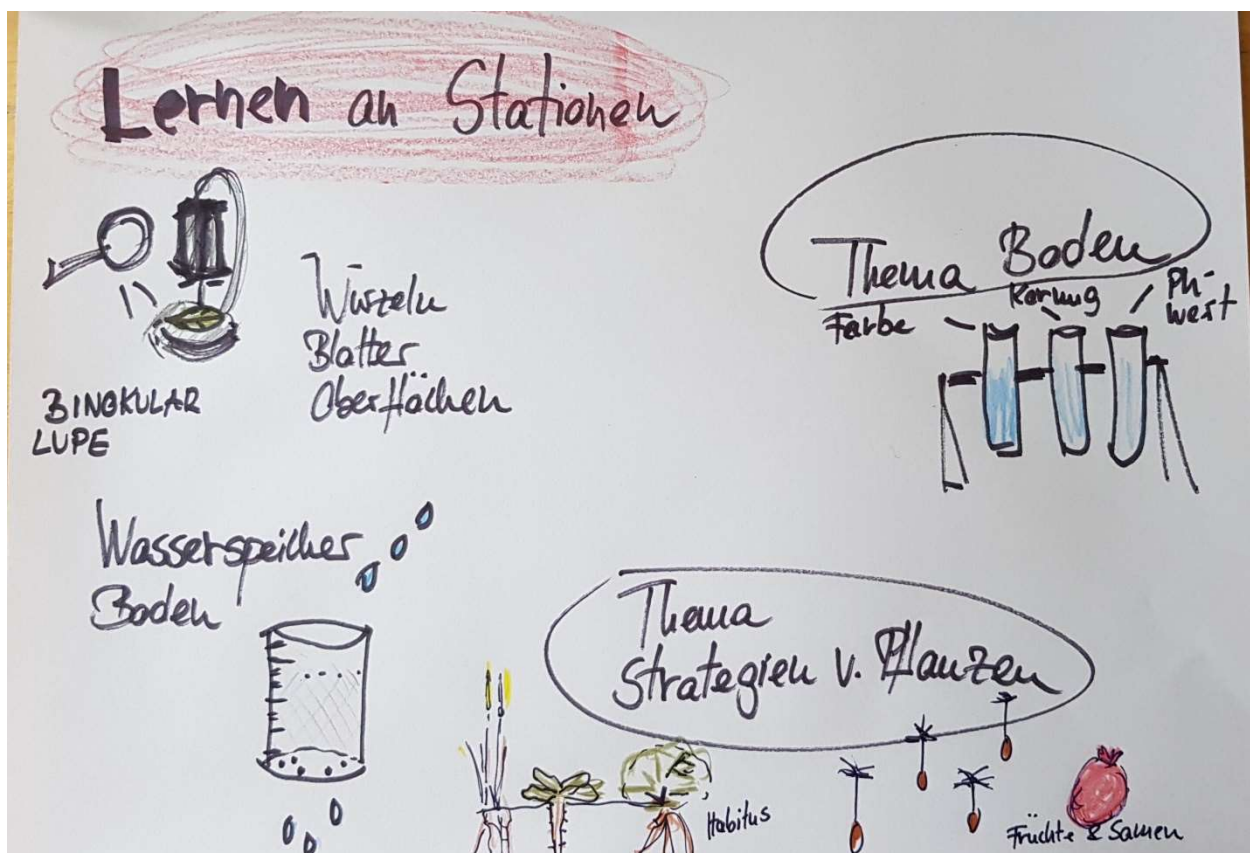 Lernen an Stationen
Wurzeln
Blatter
Oberflächen
BINOKULAR
LUPE
Thema Boden
Farbe
Körnung
Ph-
Wert
Wasserspeicher
Boden
Thema
Strategien v. Pflanzen
Habitus
Früchte & Samen